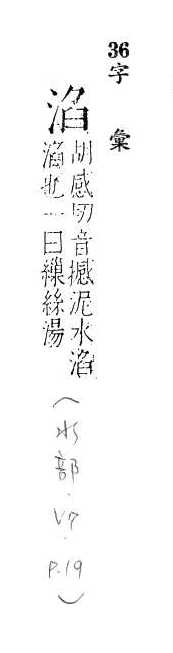 36字彙
淊
胡感切音撼泥水淊
淊也一曰繅絲湯
(水部.V7.P.19)